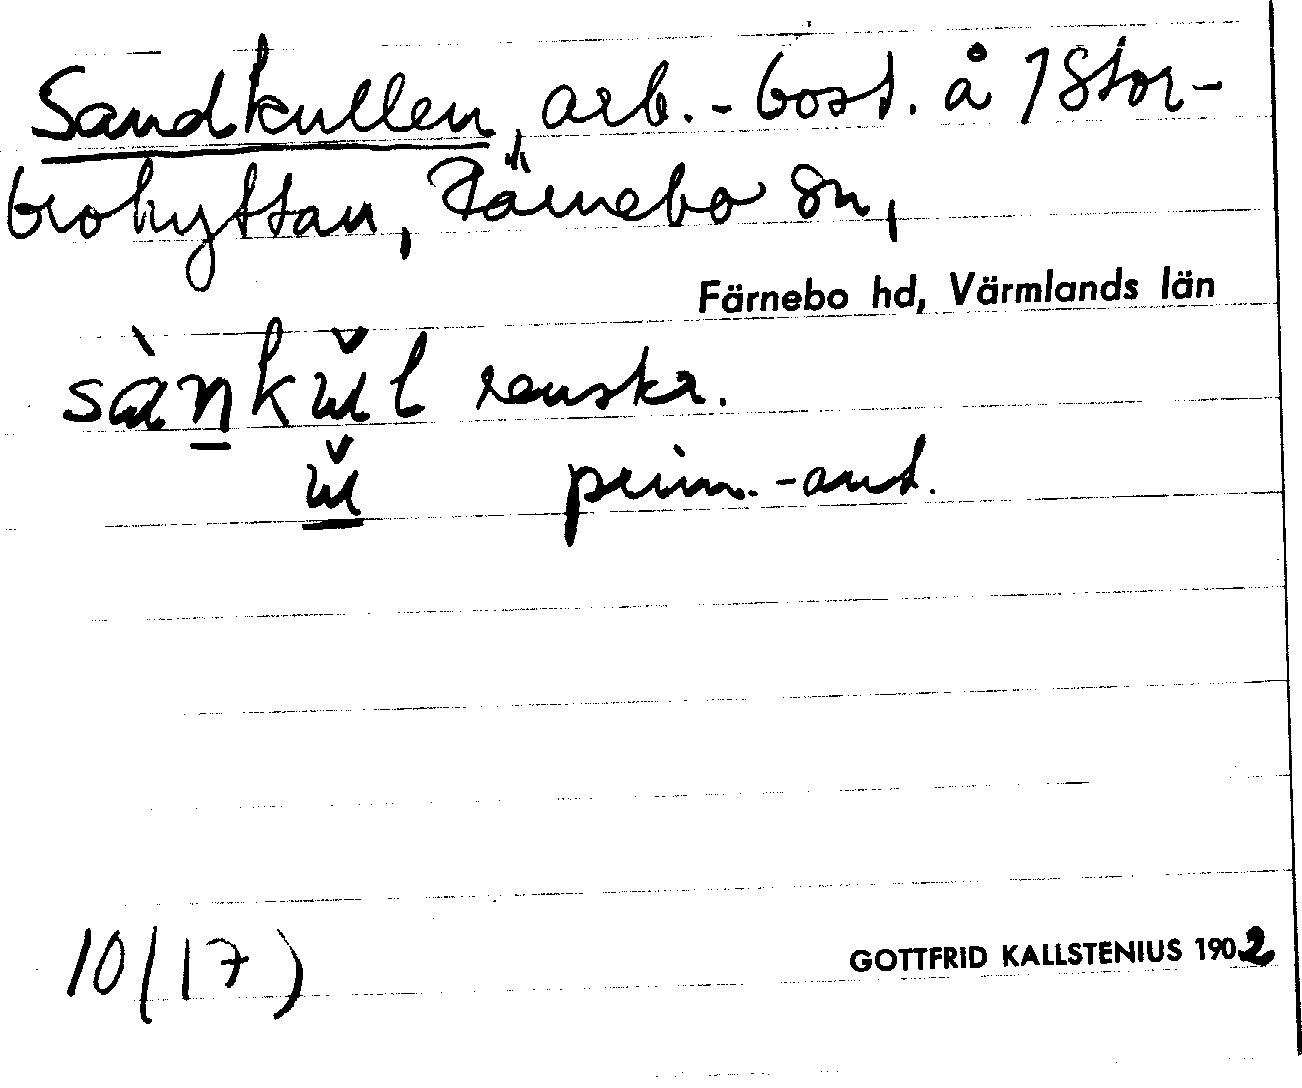 Sandkullen, arb.-bost. å 1 Stor-
brohyttan, Färnebo sn,
Färnebo hd, Värmlands län
renskr.
prim.-ant.
10(17)
GOTTFRID KALLSTENIUS 1902